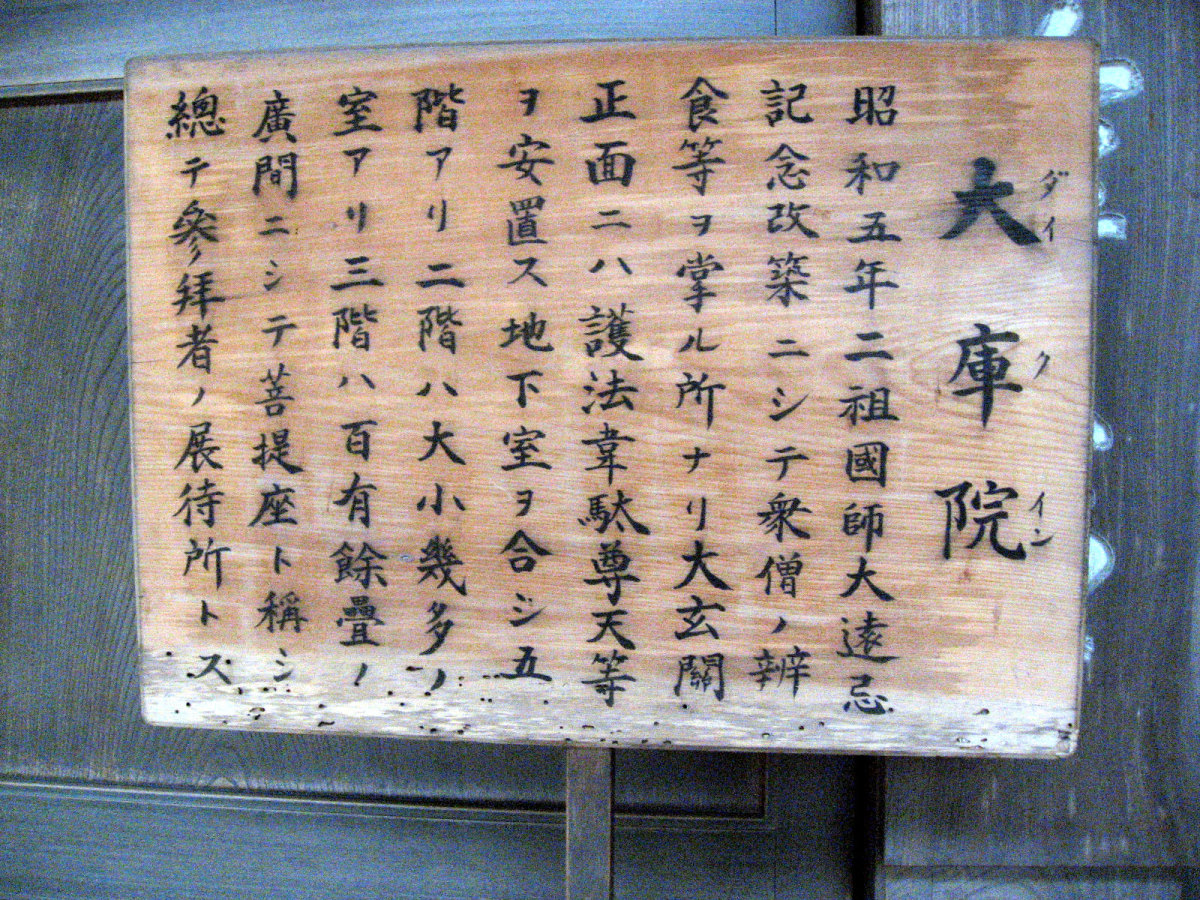 大庫院
ダイクイン
昭和五年二祖國師大遠忌
記念改築ニシテ衆僧ノ辨
食等ヲ掌ル所ナリ大玄關
正面ニハ護法韋駄尊天等
ヲ安置ス地下室ヲ合シ五
階アリ二階ハ大小幾多ノ
室アリ三階ハ百有餘疊ノ
廣間ニシテ菩提座ト稱シ
總テ參拜者ノ展待所トス